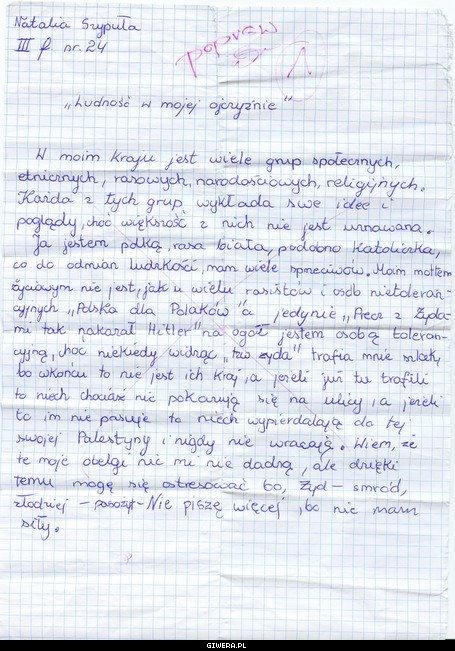 Natalia Szypuła
III f nr. 24
popraw
1
„Ludność w mojej ojczyźnie”
W moim kraju jest wiele grup społecznych,
etnicznych, rasowych, narodościowych, religijnych.
Każda z tych grup wykłada swe idee i
poglądy, choć większość z nich nie jest uznawana.
Ja jestem polką, rasa biała, podobno katoliczka,
co do odmian ludzkości, mam wiele sprzeciwów. Moim mottem
życiowym nie jest, jak u wielu rasistów i osób nietoleran-
cyjnych „Polska dla Polaków” a jedynie „Precz z Żyda-
mi tak nakazał Hitler” na ogół jestem osobą toleran-
cyjną, choć niekiedy widząc „tzw żyda” trafia mnie szlak,
bo wkońcu to nie jest ich kraj, a jeżeli już tu trafili
to niech chociaż nie pokazują się na ulicy, a jeżeli
to im nie pasuje to niech wypierdalają do tej
swojej Palestyny i nigdy nie wracają. Wiem, że
te moje obelgi nic mi nie dadzą, ale dzięki
temu mogę się odstresować bo, Żyd – smród,
złodziej – pasożyt – Nie piszę więcej, bo nie mam
siły.
GIWERA.PL